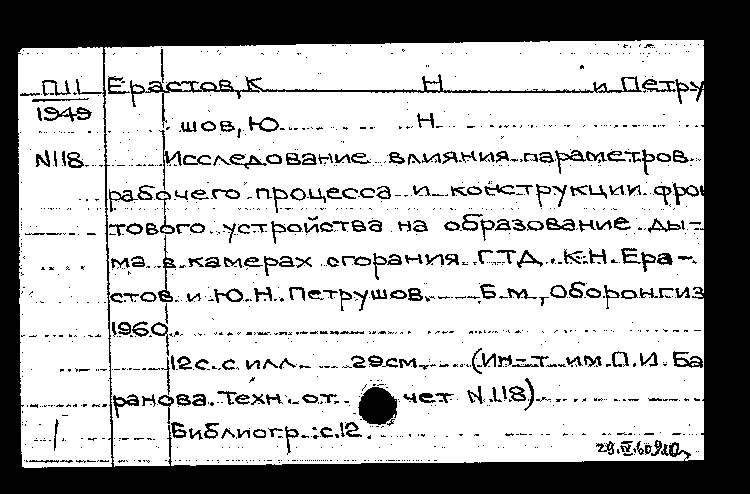 П11 Ерастов, К Н и Петру
1949
шов, Ю Н
N118 Исследование влияния параметров
рабочего процесса и конструкции фрон
тового устройства на образование ды-
ма в камерах сгорания ГТД. К.Н. Ера-
стов и Ю.Н. Петрушов. Б.м., Оборонгиз
1960.
12с. с илл. 29см. (Ин-т им. П.И. Ба
ранова. Техн. от чет N118)
Библиогр.: с.12.
1 29.IV.60